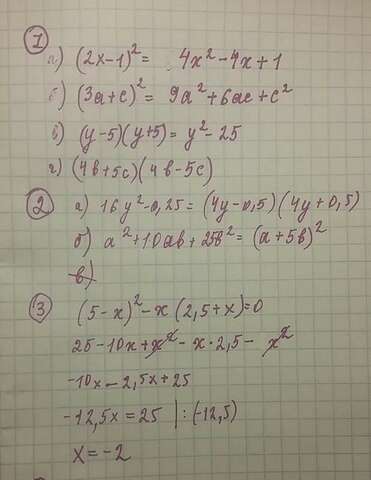 1
а) (2x-1)² = 4x² - 4x + 1
б) (3a+c)² = 9a² + 6ac + c²
в) (y-5)(y+5) = y² - 25
г) (4b+5c)(4b-5c)
2 а) 16y² - 0,25 = (4y-0,5)(4y+0,5)
б) a² + 10ab + 25b² = (a+5b)²
в)
3 (5-x)² - x(2,5+x) = 0
25 - 10x + x² - x·2,5 - x²
-10x - 2,5x + 25
-12,5x = 25 |:(-12,5)
x = -2